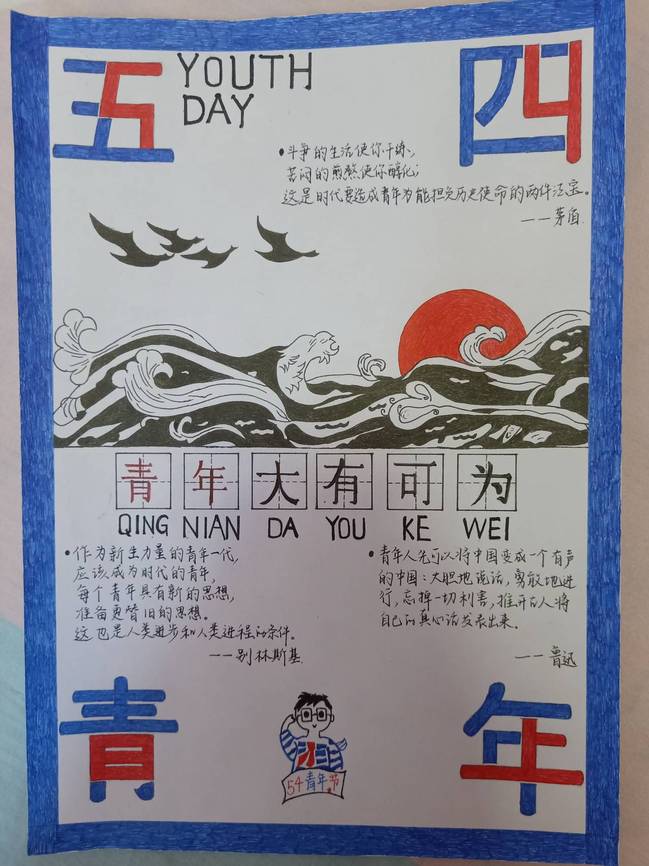 五四
YOUTH
DAY
•斗争的生活使你干练,
苦闷的煎熬使你醇化;
这是时代要造成青年为能担负历史使命的两件法宝。
——茅盾
青年大有可为
QING NIAN DA YOU KE WEI
•作为新生力量的青年一代,
应该成为时代的青年,
每个青年具有新的思想,
准备更替旧的思想。
这也是人类进步和人类进程的条件。
——别林斯基
•青年人先可以将中国变成一个有声
的中国:大胆地说话,勇敢地进
行,忘掉一切利害,推开古人将
自己的真心话发表出来。
——鲁迅
青年
54青年节